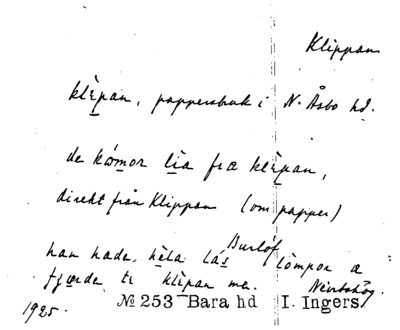 Klippan
klὲpan, pappersbruk i N. Åsbo hd.
de kómor lìa fra klὲpan,
direkt från Klippan (om papper)
Burlöf
han hade, hela lás lòmpor a
fjærde te klὲpan me.
1925. № 253 Bara hd I. Ingers